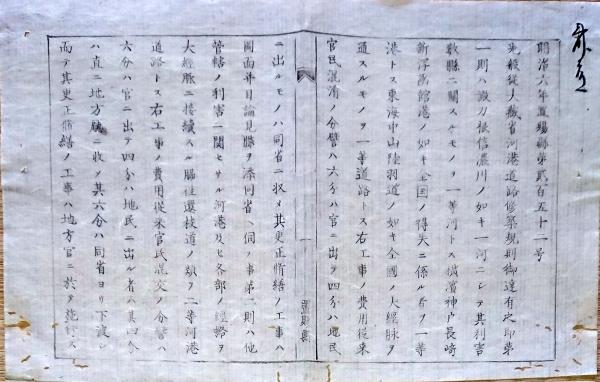 明治六年置賜縣第貳百五十一号
先般従大藏省河港道路修築規則御達有之即第
一則ハ淀刀根信濃川ノ如キ一河ニシテ其利害
数縣ニ關スルモノヲ一等河トス横濱神戸長崎
新潟函館港ノ如キ全国ノ得失ニ係ル者ヲ一等
港トス東海中山陸羽道ノ如キ全國ノ大經脉ヲ
通スルモノヲ一等道路トス右工事ノ費用従来
官民混淆ノ分譬ハ六分ハ官ニ出テ四分ハ地民
ニ出ルモノハ同省ニ収メ其更正脩繕ノ工事ハ
圖面并目論見縣ヲ添同省ヘ伺ノ事第二則ハ他
管轄ノ利害ニ關セサル河港及ヒ各部ノ經路ヲ
大經脉ニ接續スル脇往還枝道ノ類ヲ二等河港
道路トス右工事ノ費用従来官民混交ノ分譬ハ
六分ハ官ニ出テ四分ハ地民ニ出ル者ハ其四分
ハ直ニ地方廳ニ收メ其六分ハ同省ヨリ下渡シ
而テ其更正脩繕ノ工事ハ地方官ニ於テ施行ス
一
置賜縣